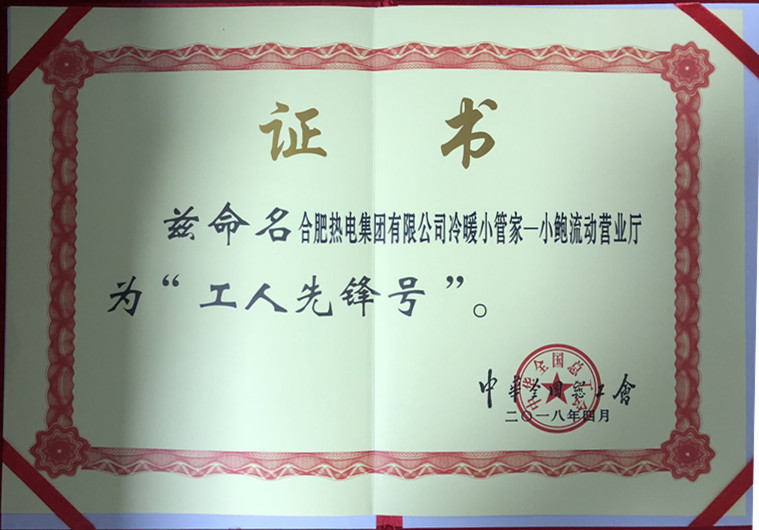 证书
兹命名合肥热电集团有限公司冷暖小管家—小鲍流动营业厅
为“工人先锋号”。
中华全国总工会
中華全国總工會
二〇一八年四月